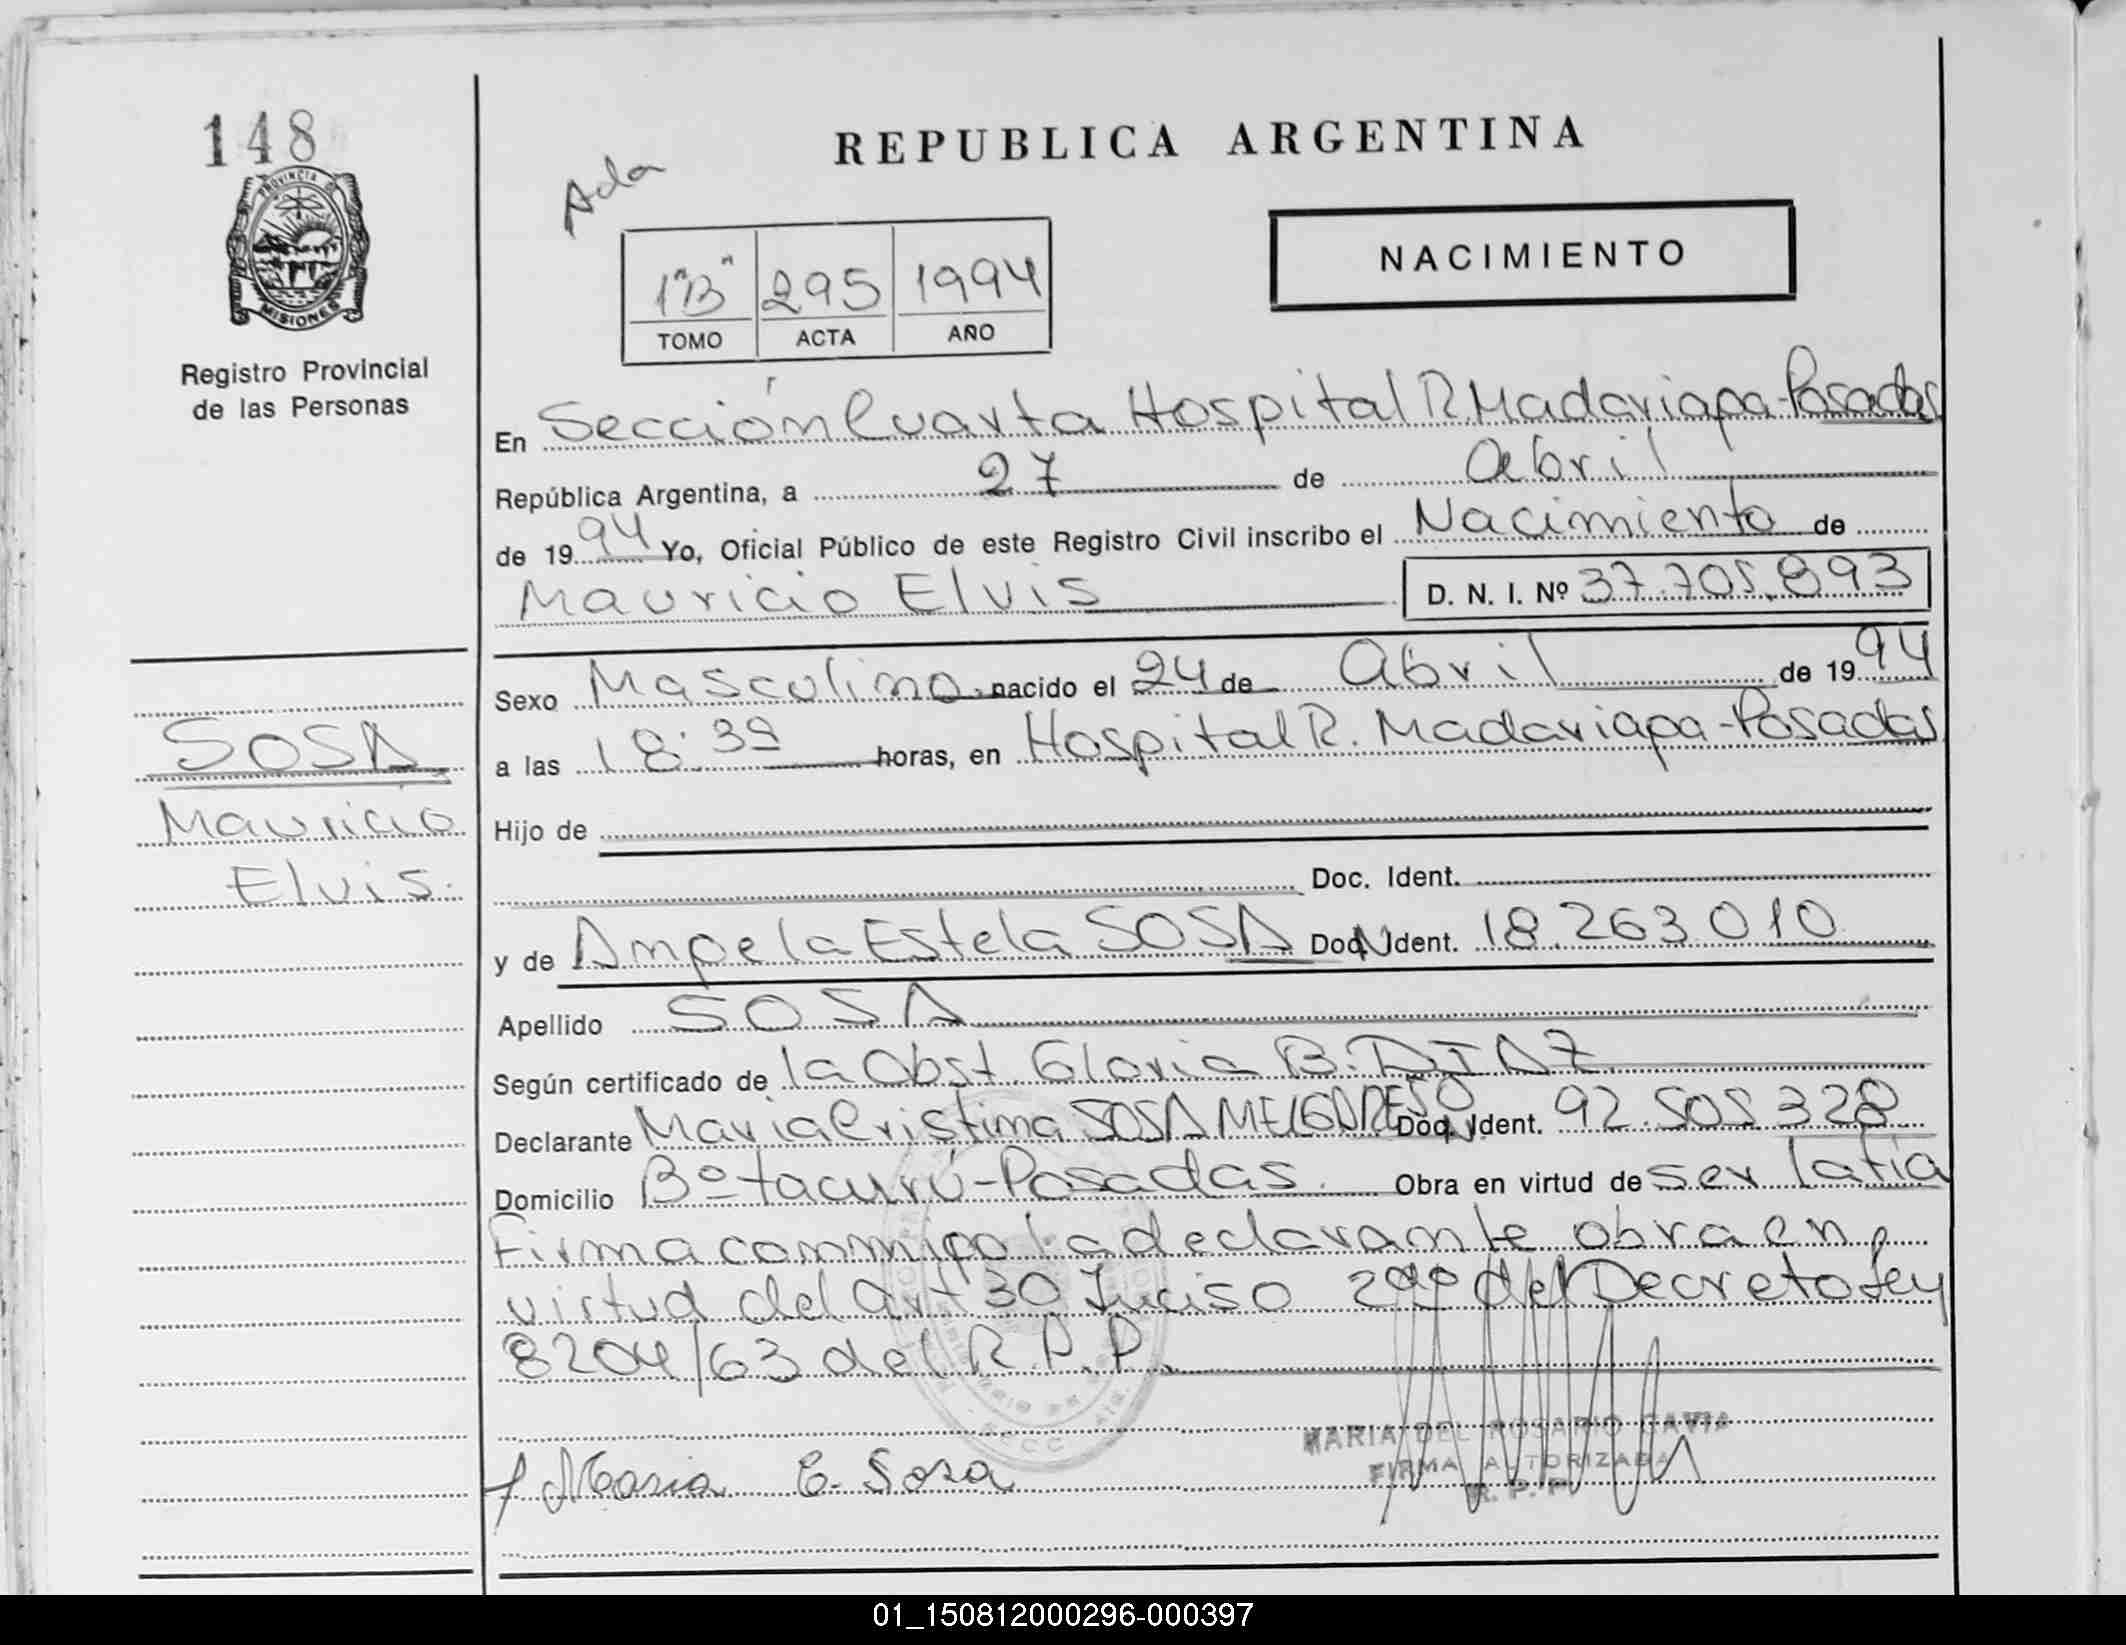 148
PROVINCIA D
MISIONES
Registro Provincial
de las Personas
REPUBLICA ARGENTINA
Ada
1"B" 295 1994
TOMO ACTA AÑO
NACIMIENTO
En Sección Cuarta Hospital R. Madariaga-Posadas
República Argentina, a 27 de Abril
de 1994 Yo, Oficial Público de este Registro Civil inscribo el Nacimiento de
Mauricio Elvis D. N. I. Nº 37.705.893
Sexo Masculino nacido el 24 de Abril de 1994
a las 18:39 horas, en Hospital R. Madariaga-Posadas
Hijo de
Doc. Ident.
y de Angela Estela SOSA Doc. Ident. 18.263.010
Apellido SOSA
Según certificado de la Obst. Gloria B. DIAZ
Declarante Maria Cristina SOSA MELGAREJO Doc. Ident. 92.505.328
Domicilio Bº tacurú-Posadas. Obra en virtud de ser la tía
Firma conmigo la declarante obra en
virtud del art 30 Inciso 2do del Decreto Ley
8204/63 del R.P.P.
SOSA
Mauricio
Elvis.
Maria C. Sosa
MARIA DEL ROSARIO GAVIA
FIRMA AUTORIZADA
R. P. P.
01_150812000296-000397